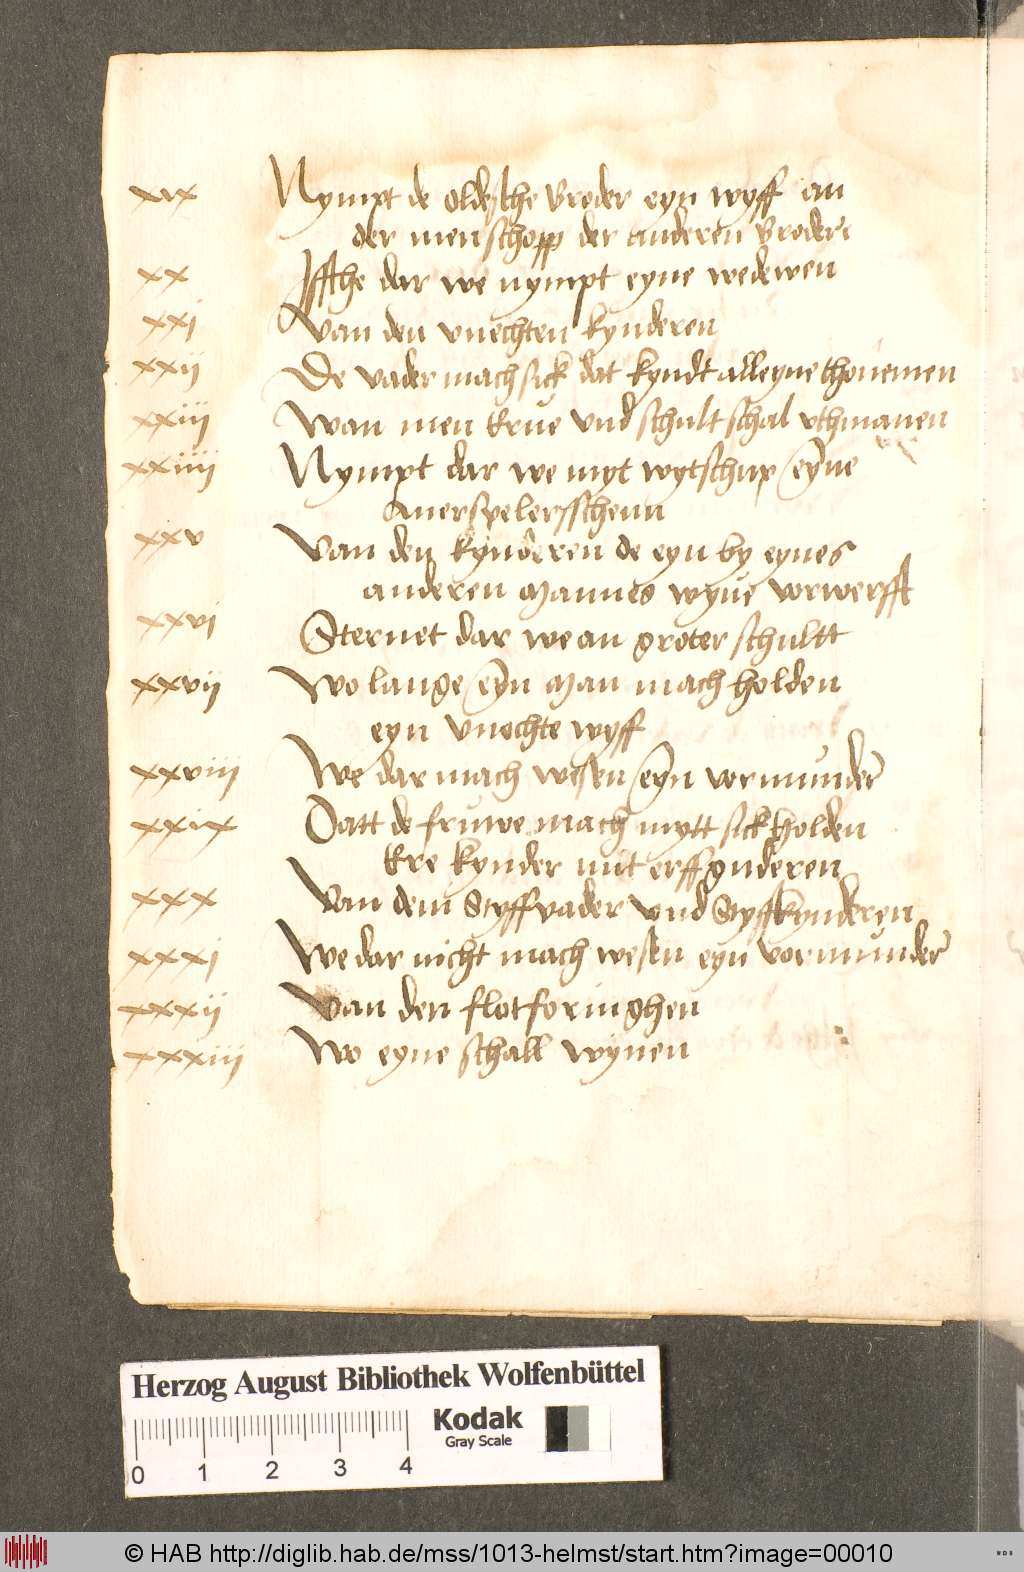 xix Nympt de oldesche broder eyn wyff an
der menschopp der anderen broder
xx Iffthe dar we nympt eyne wedewen
xxi Van den vnechten kynderen
xxii De vader mach sick dat kyndt alleyne thonemen
xxiii Wan men krue vnd schult schal vthmanen
xxiiii Nympt dar we myt wytschup eyne
Auerspelersschenn
xxv Van den kynderen de eyn by eynes
anderen mannes wyue vorwerfft
xxvi Sternet dar we an groter schultt
xxvii Wo lange eyn man mach holden
eyn vnechte wyff
xxviii We dar mach wesen eyn vormunder
xxix Datt de fruwe mach mytt sick holden
ere kynder mit erffguderen
xxx Van dem Styffvader vnd Styffkynderen
xxxi We dar nicht mach wesen eyn vormunder
xxxii Van den flotforinghen
xxxiii Wo eyne schall wynen
Herzog August Bibliothek Wolfenbüttel
Kodak
Gray Scale
0 1 2 3 4
© HAB http://diglib.hab.de/mss/1013-helmst/start.htm?image=00010